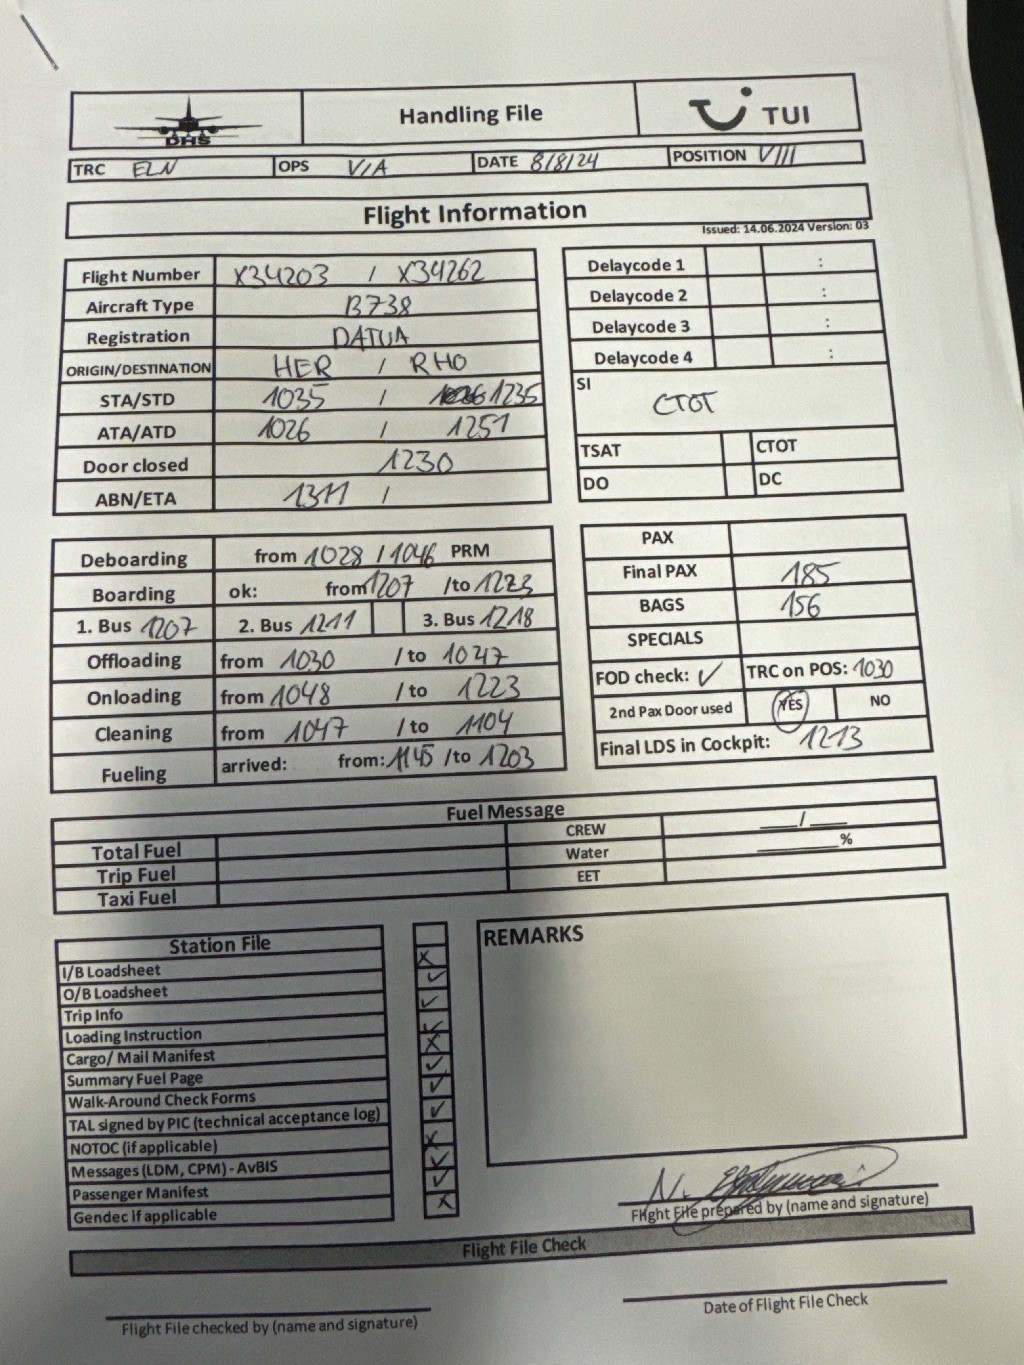 DHS
Handling File
TUI
TRC ELN OPS V/A DATE 8/8/24 POSITION VIII
Flight Information
Issued: 14.06.2024 Version: 03
Flight Number X34203 / X34262
Aircraft Type B738
Registration DATUA
ORIGIN/DESTINATION HER / RHO
STA/STD 1035 / 1235
ATA/ATD 1026 / 1251
Door closed 1230
ABN/ETA 1311 /
Delaycode 1 :
Delaycode 2 :
Delaycode 3 :
Delaycode 4 :
SI
CTOT
TSAT CTOT
DO DC
Deboarding from 1028 / 1046 PRM
Boarding ok: from 1207 /to 1223
1. Bus 1207 2. Bus 1211 3. Bus 1218
Offloading from 1030 / to 1047
Onloading from 1048 / to 1223
Cleaning from 1047 / to 1104
Fueling arrived: from: 1145 /to 1203
PAX
Final PAX 185
BAGS 156
SPECIALS
FOD check: ✓ TRC on POS: 1030
2nd Pax Door used YES NO
Final LDS in Cockpit: 1213
Fuel Message
Total Fuel CREW ___/___
Trip Fuel Water ______%
Taxi Fuel EET
Station File
I/B Loadsheet X
O/B Loadsheet ✓
Trip Info ✓
Loading Instruction ✓
Cargo/ Mail Manifest X
Summary Fuel Page ✓
Walk-Around Check Forms ✓
TAL signed by PIC (technical acceptance log) ✓
NOTOC (if applicable) X
Messages (LDM, CPM) - AvBIS ✓
Passenger Manifest ✓
Gendec if applicable X
REMARKS
N.
Flight File prepared by (name and signature)
Flight File Check
Flight File checked by (name and signature)
Date of Flight File Check